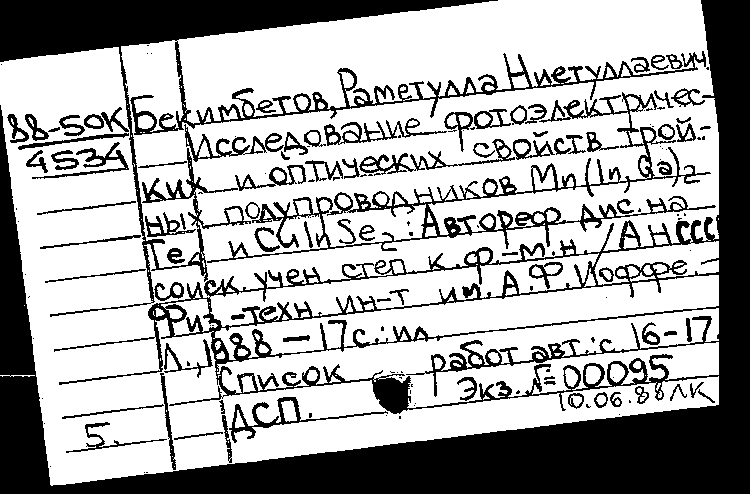 88-50К
4534
Бекимбетов, Раметулла Ниетуллаевич.
Исследование фотоэлектричес-
ких и оптических свойств трой-
ных полупроводников Mn(In, Ga)2
Te4 и CuInSe2 : Автореф. дис. на
соиск. учен. степ. к. ф.-м. н. / АН СССР
Физ.-техн. ин-т им. А. Ф. Иоффе. –
Л., 1988. – 17 с.: ил.
Список работ авт.: с 16-17.
ДСП. Экз. № 00095
5. 10.06.88 ЛК